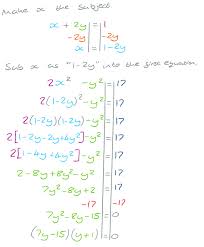 Make x the subject.
x + 2y = 1
-2y -2y
x = 1-2y
Sub x as "1-2y" into the first equation.
2x² - y² = 17
2(1-2y)² - y² = 17
2(1-2y)(1-2y) - y² = 17
2[1-2y-2y+4y²] - y² = 17
2[1-4y+4y²] - y² = 17
2-8y+8y²-y² = 17
7y²-8y+2 = 17
-17 -17
7y²-8y-15 = 0
(7y-15)(y+1) = 0